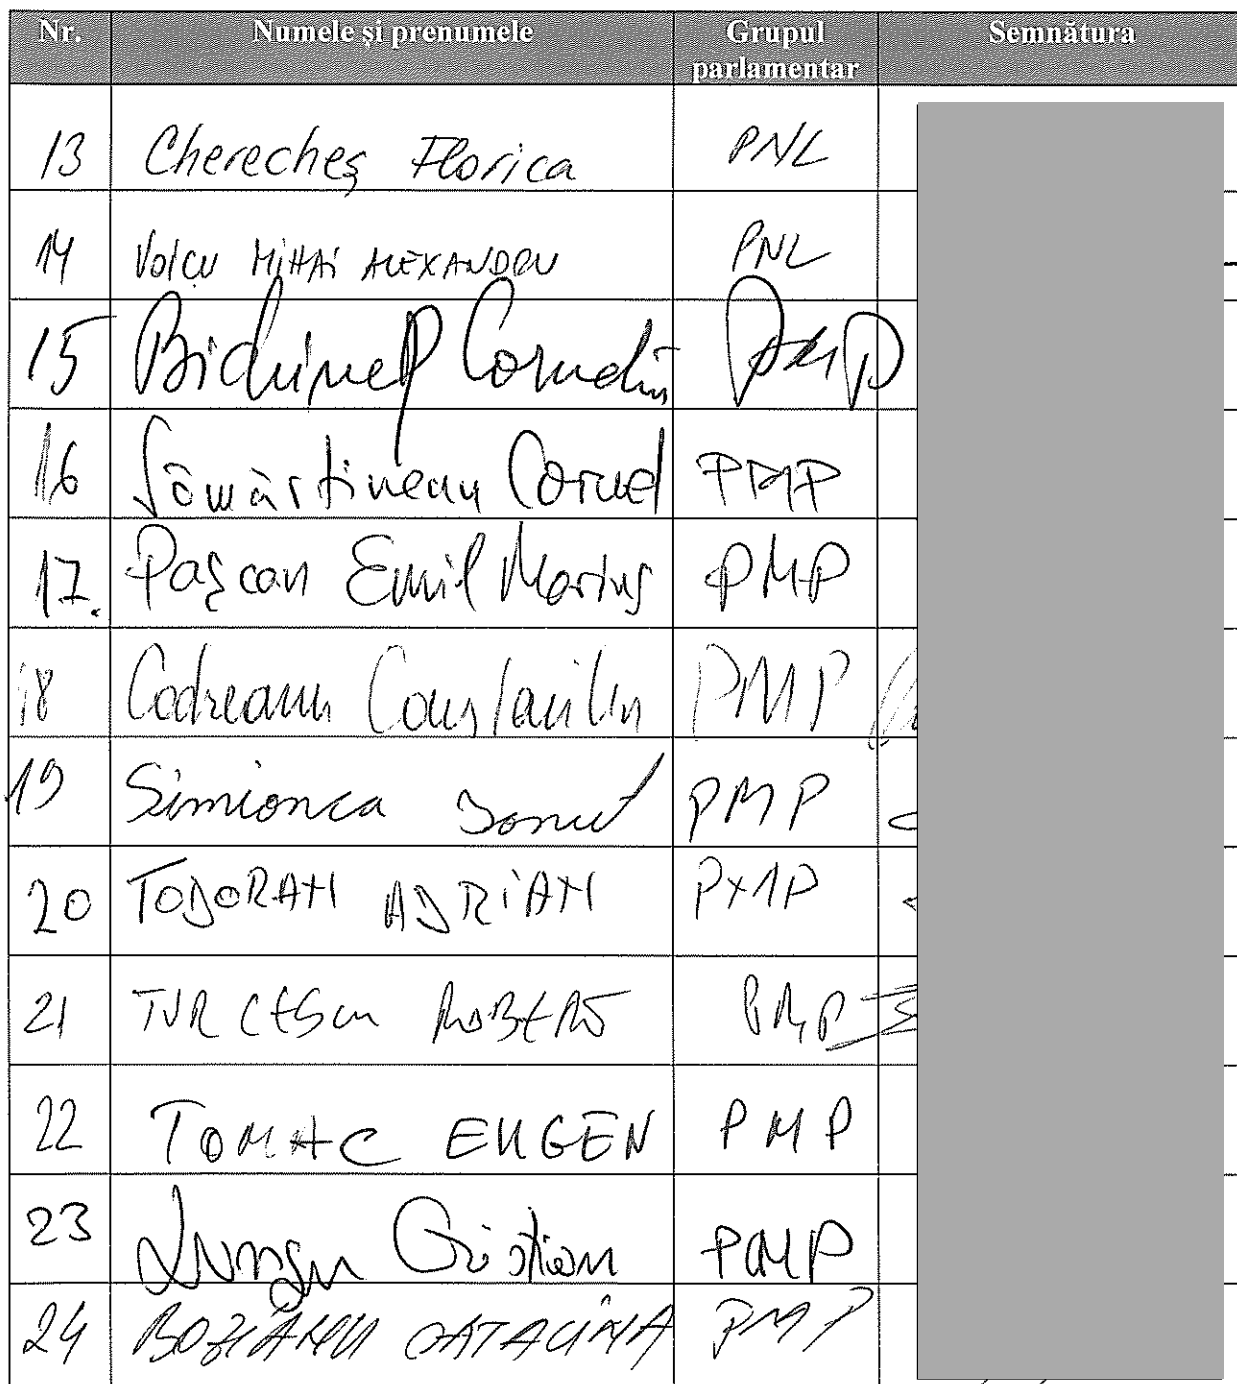 Nr. Numele și prenumele Grupul parlamentar Semnătura
13 Cherecheș Florica PNL
14 Voicu MIHAI ALEXANDRU PNL
15 Bichineț Corneliu PMP
16 Sămărtinean Cornel PMP
17. Pașcan Emil Marius PMP
18 Codreanu Constantin PMP
19 Simionca Ionuț PMP
20 TODORAN ADRIAN PMP
21 TURCESCU ROBERT PMP
22 TOMAC EUGEN PMP
23 Lungu Cristian PMP
24 BOZIANU CATALINA PMP